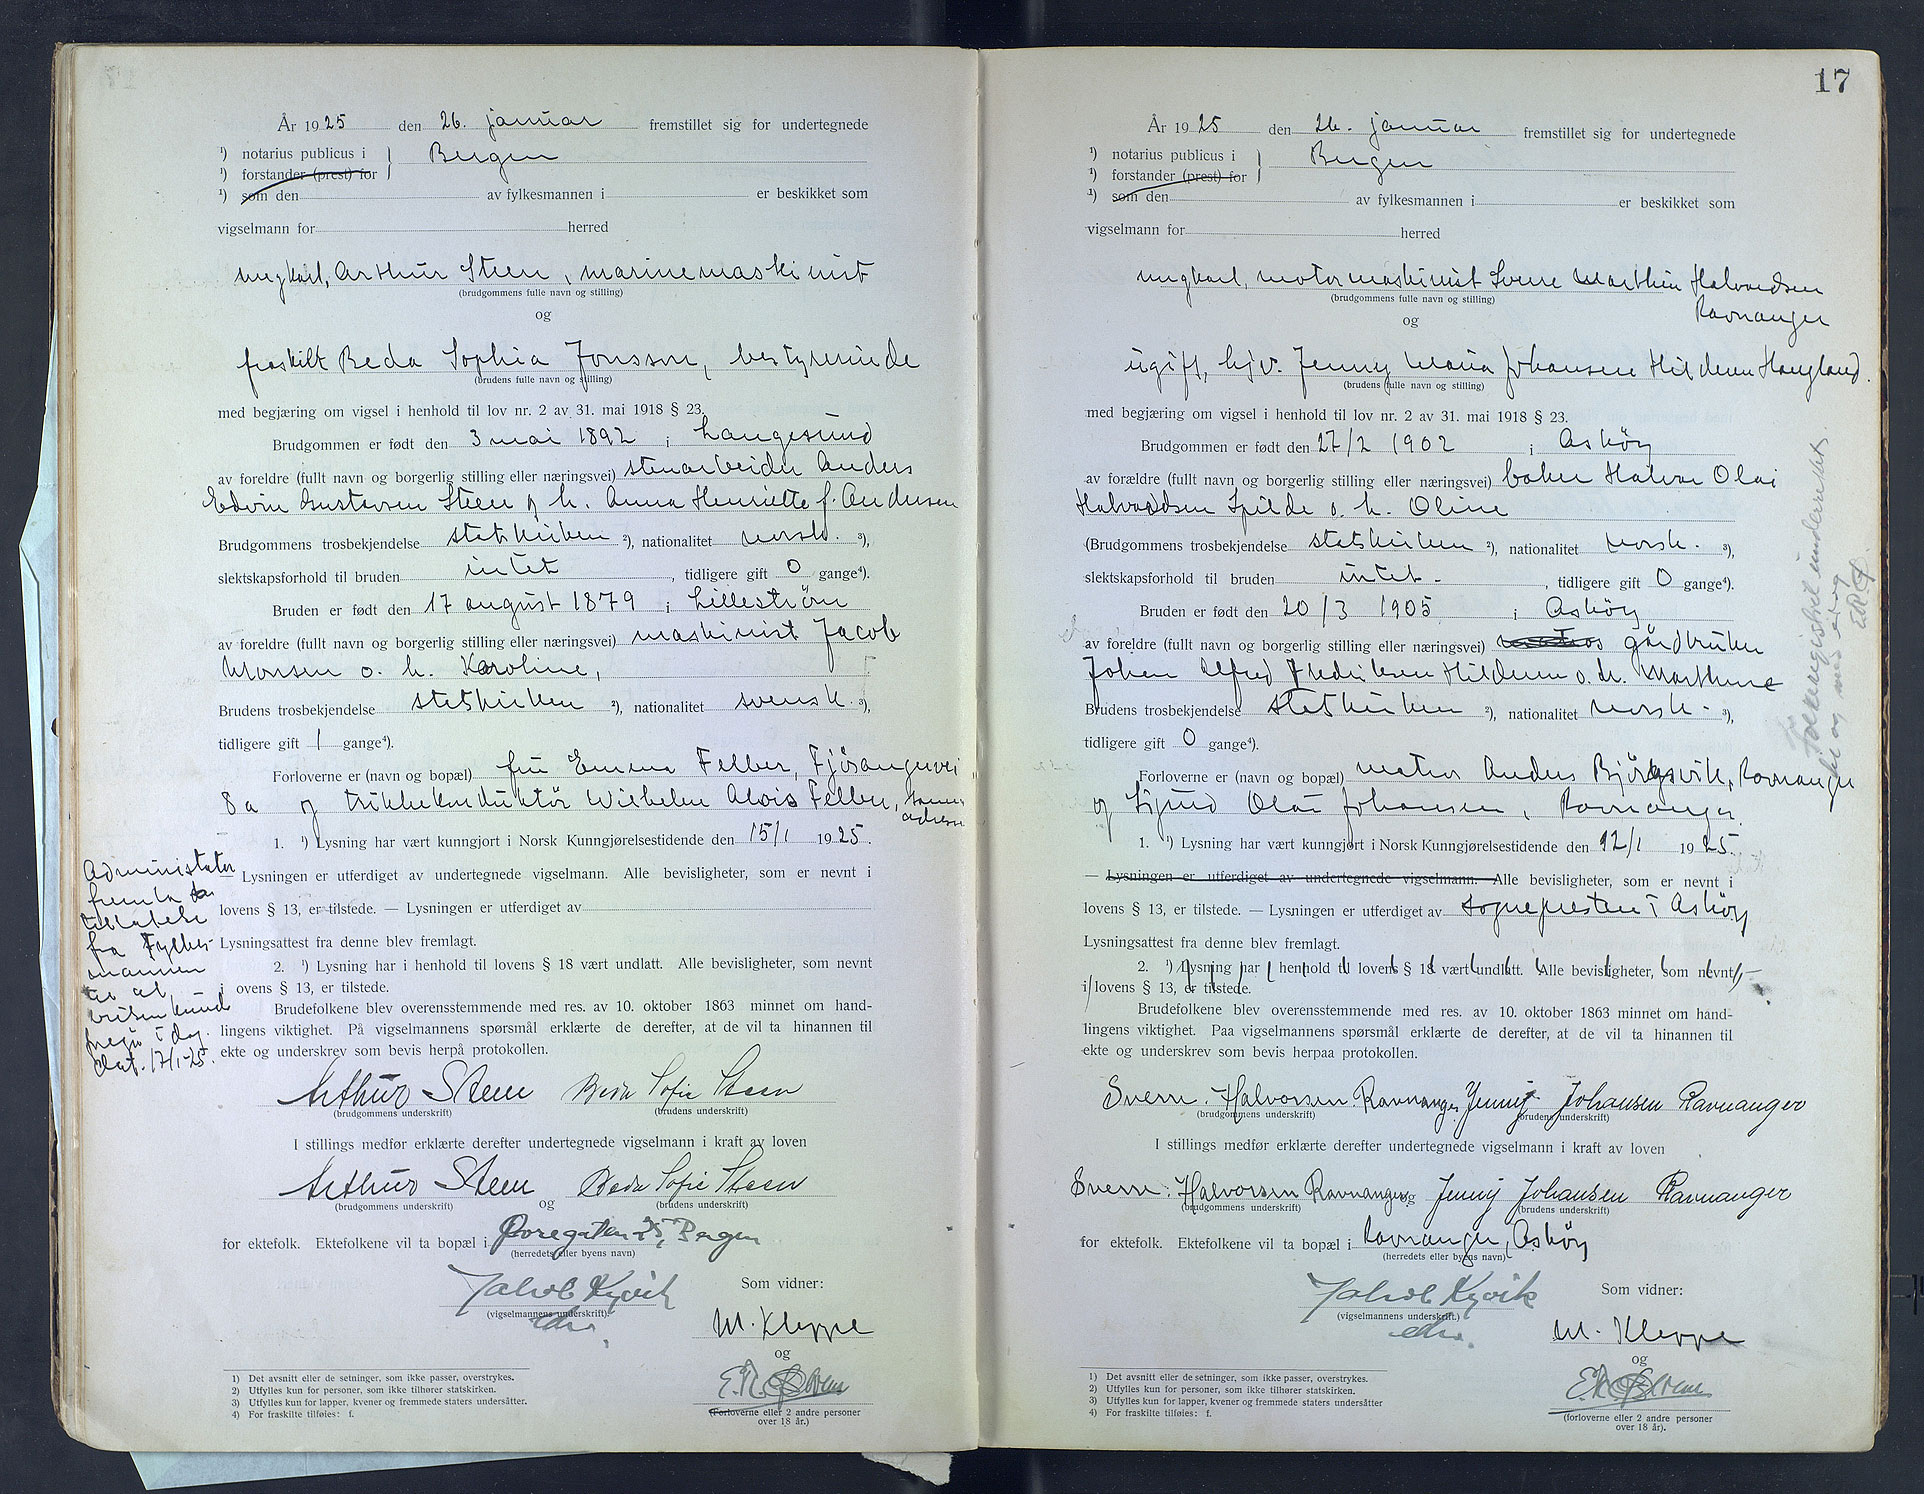 År 1925 den 26. januar fremstillet sig for undertegnede
¹) notarius publicus i } Bergen
¹) forstander (prest) for
¹) som den av fylkesmannen i er beskikket som
vigselmann for herred
ungkarl, Arthur Steen, marinemaskinist
(brudgommens fulle navn og stilling)
og
fraskilt Beda Sophia Jonsson, bestyrerinde
(brudens fulle navn og stilling)
med begjæring om vigsel i henhold til lov nr. 2 av 31. mai 1918 § 23.
Brudgommen er født den 3 mai 1892 i Langesund
av foreldre (fullt navn og borgerlig stilling eller næringsvei) stenarbeider Anders
Edvin Gustavsen Steen og h. Anna Henriette f. Andersen
Brudgommens trosbekjendelse statskirken ²), nationalitet norsk. ³),
slektskapsforhold til bruden intet, tidligere gift 0 gange⁴).
Bruden er født den 17 august 1879 i Lillestrøm
av foreldre (fullt navn og borgerlig stilling eller næringsvei) maskinist Jacob
Monsen o. h. Karoline,
Brudens trosbekjendelse statskirken ²), nationalitet svensk. ³),
tidligere gift 1 gange⁴).
Forloverne er (navn og bopæl) fru Emma Felber, Fjøsangervei
8a og trikkekonduktør Wilhelm Alois Felber, samme
adresse
1. ¹) Lysning har vært kunngjort i Norsk Kunngjørelsestidende den 15/1 1925.
— Lysningen er utferdiget av undertegnede vigselmann. Alle bevisligheter, som er nevnt i
lovens § 13, er tilstede. — Lysningen er utferdiget av
Lysningsattest fra denne blev fremlagt.
2. ¹) Lysning har i henhold til lovens § 18 vært undlatt. Alle bevisligheter, som nevnt
i ovens § 13, er tilstede.
Administrator
fremla
tilladelse
fra Fylkes-
mannen
til at
vielsen kunde
foregå i dag.
dat. 17/1-25.
Brudefolkene blev overensstemmende med res. av 10. oktober 1863 minnet om hand-
lingens viktighet. På vigselmannens spørsmål erklærte de derefter, at de vil ta hinannen til
ekte og underskrev som bevis herpå protokollen.
Arthur Steen Beda Sofie Steen
(brudgommens underskrift) (brudens underskrift)
I stillings medfør erklærte derefter undertegnede vigselmann i kraft av loven
Arthur Steen og Beda Sofie Steen
(brudgommens underskrift) (brudens underskrift)
for ektefolk. Ektefolkene vil ta bopæl i Øvregaten 25, Bergen
(herredets eller byens navn)
Jakob Kjvik
(vigselmannens underskrift).
Som vidner:
M. Kleppe
og
(Forloverne eller 2 andre personer
over 18 år.)
1) Det avsnitt eller de setninger, som ikke passer, overstrykes.
2) Utfylles kun for personer, som ikke tilhører statskirken.
3) Utfylles kun for lapper, kvener og fremmede staters undersåtter.
4) For fraskilte tilføies: f.
17
År 1925 den 26. januar fremstillet sig for undertegnede
¹) notarius publicus i } Bergen
¹) forstander (prest) for
¹) som den av fylkesmannen i er beskikket som
vigselmann for herred
ungkarl, motormaskinist Sverre Marthin Halvardsen
Ravnanger
(brudgommens fulle navn og stilling)
og
ugift, hjv. Jenny Maria Johansen Hilderen Haugland.
(brudens fulle navn og stilling)
med begjæring om vigsel i henhold til lov nr. 2 av 31. mai 1918 § 23.
Brudgommen er født den 27/2 1902 i Askøy
av forældre (fullt navn og borgerlig stilling eller næringsvei) baker Halvor Olai
Halvardsen Spilde o. h. Oline
(Brudgommens trosbekjendelse statskirken ²), nationalitet norsk. ³),
slektskapsforhold til bruden intet. , tidligere gift 0 gange⁴).
Bruden er født den 20/3 1905 i Askøy
av foreldre (fullt navn og borgerlig stilling eller næringsvei) gårdbruker
Johan Alfred Fredriksen Hilderen o. h. Marthine
Brudens trosbekjendelse statskirken ²), nationalitet norsk. ³),
tidligere gift 0 gange⁴).
Forloverne er (navn og bopæl) matros Anders Bjørgsvik, Ravnanger
og Sjurd Olai Johansen, Ravnanger.
1. ¹) Lysning har vært kunngjort i Norsk Kunngjørelsestidende den 12/1 1925.
— Lysningen er utferdiget av undertegnede vigselmann. — Alle bevisligheter, som er nevnt i
lovens § 13, er tilstede. — Lysningen er utferdiget av sognepresten i Askøy
Lysningsattest fra denne blev fremlagt.
2. ¹) Lysning har i henhold til lovens § 18 vært undlatt. Alle bevisligheter, som nevnt
i lovens § 13, er tilstede.
Brudefolkene blev overensstemmende med res. av 10. oktober 1863 minnet om hand-
lingens viktighet. Paa vigselmannens spørsmål erklærte de derefter, at de vil ta hinannen til
ekte og underskrev som bevis herpaa protokollen.
Sverre. Halvorsen. Ravnanger Jenny Johansen Ravnanger
(brudgommens underskrift) (brudens underskrift)
I stillings medfør erklærte derefter undertegnede vigselmann i kraft av loven
Sverre. Halvorsen Ravnanger og Jenny Johansen Ravnanger
(brudgommens underskrift) (brudens underskrift)
for ektefolk. Ektefolkene vil ta bopæl i Ravnanger, Askøy
(herredets eller byens navn)
Jakob Kjvik
(vigselmannens underskrift.)
Som vidner:
M. Kleppe
og
(forloverne eller 2 andre personer
over 18 år).
1) Det avsnitt eller de setninger, som ikke passer, overstrykes.
2) Utfylles kun for personer, som ikke tilhører statskirken.
3) Utfylles kun for lapper, kvener og fremmede staters undersåtter
4) For fraskilte tilføies: f.
Folkeregistret underrettet.